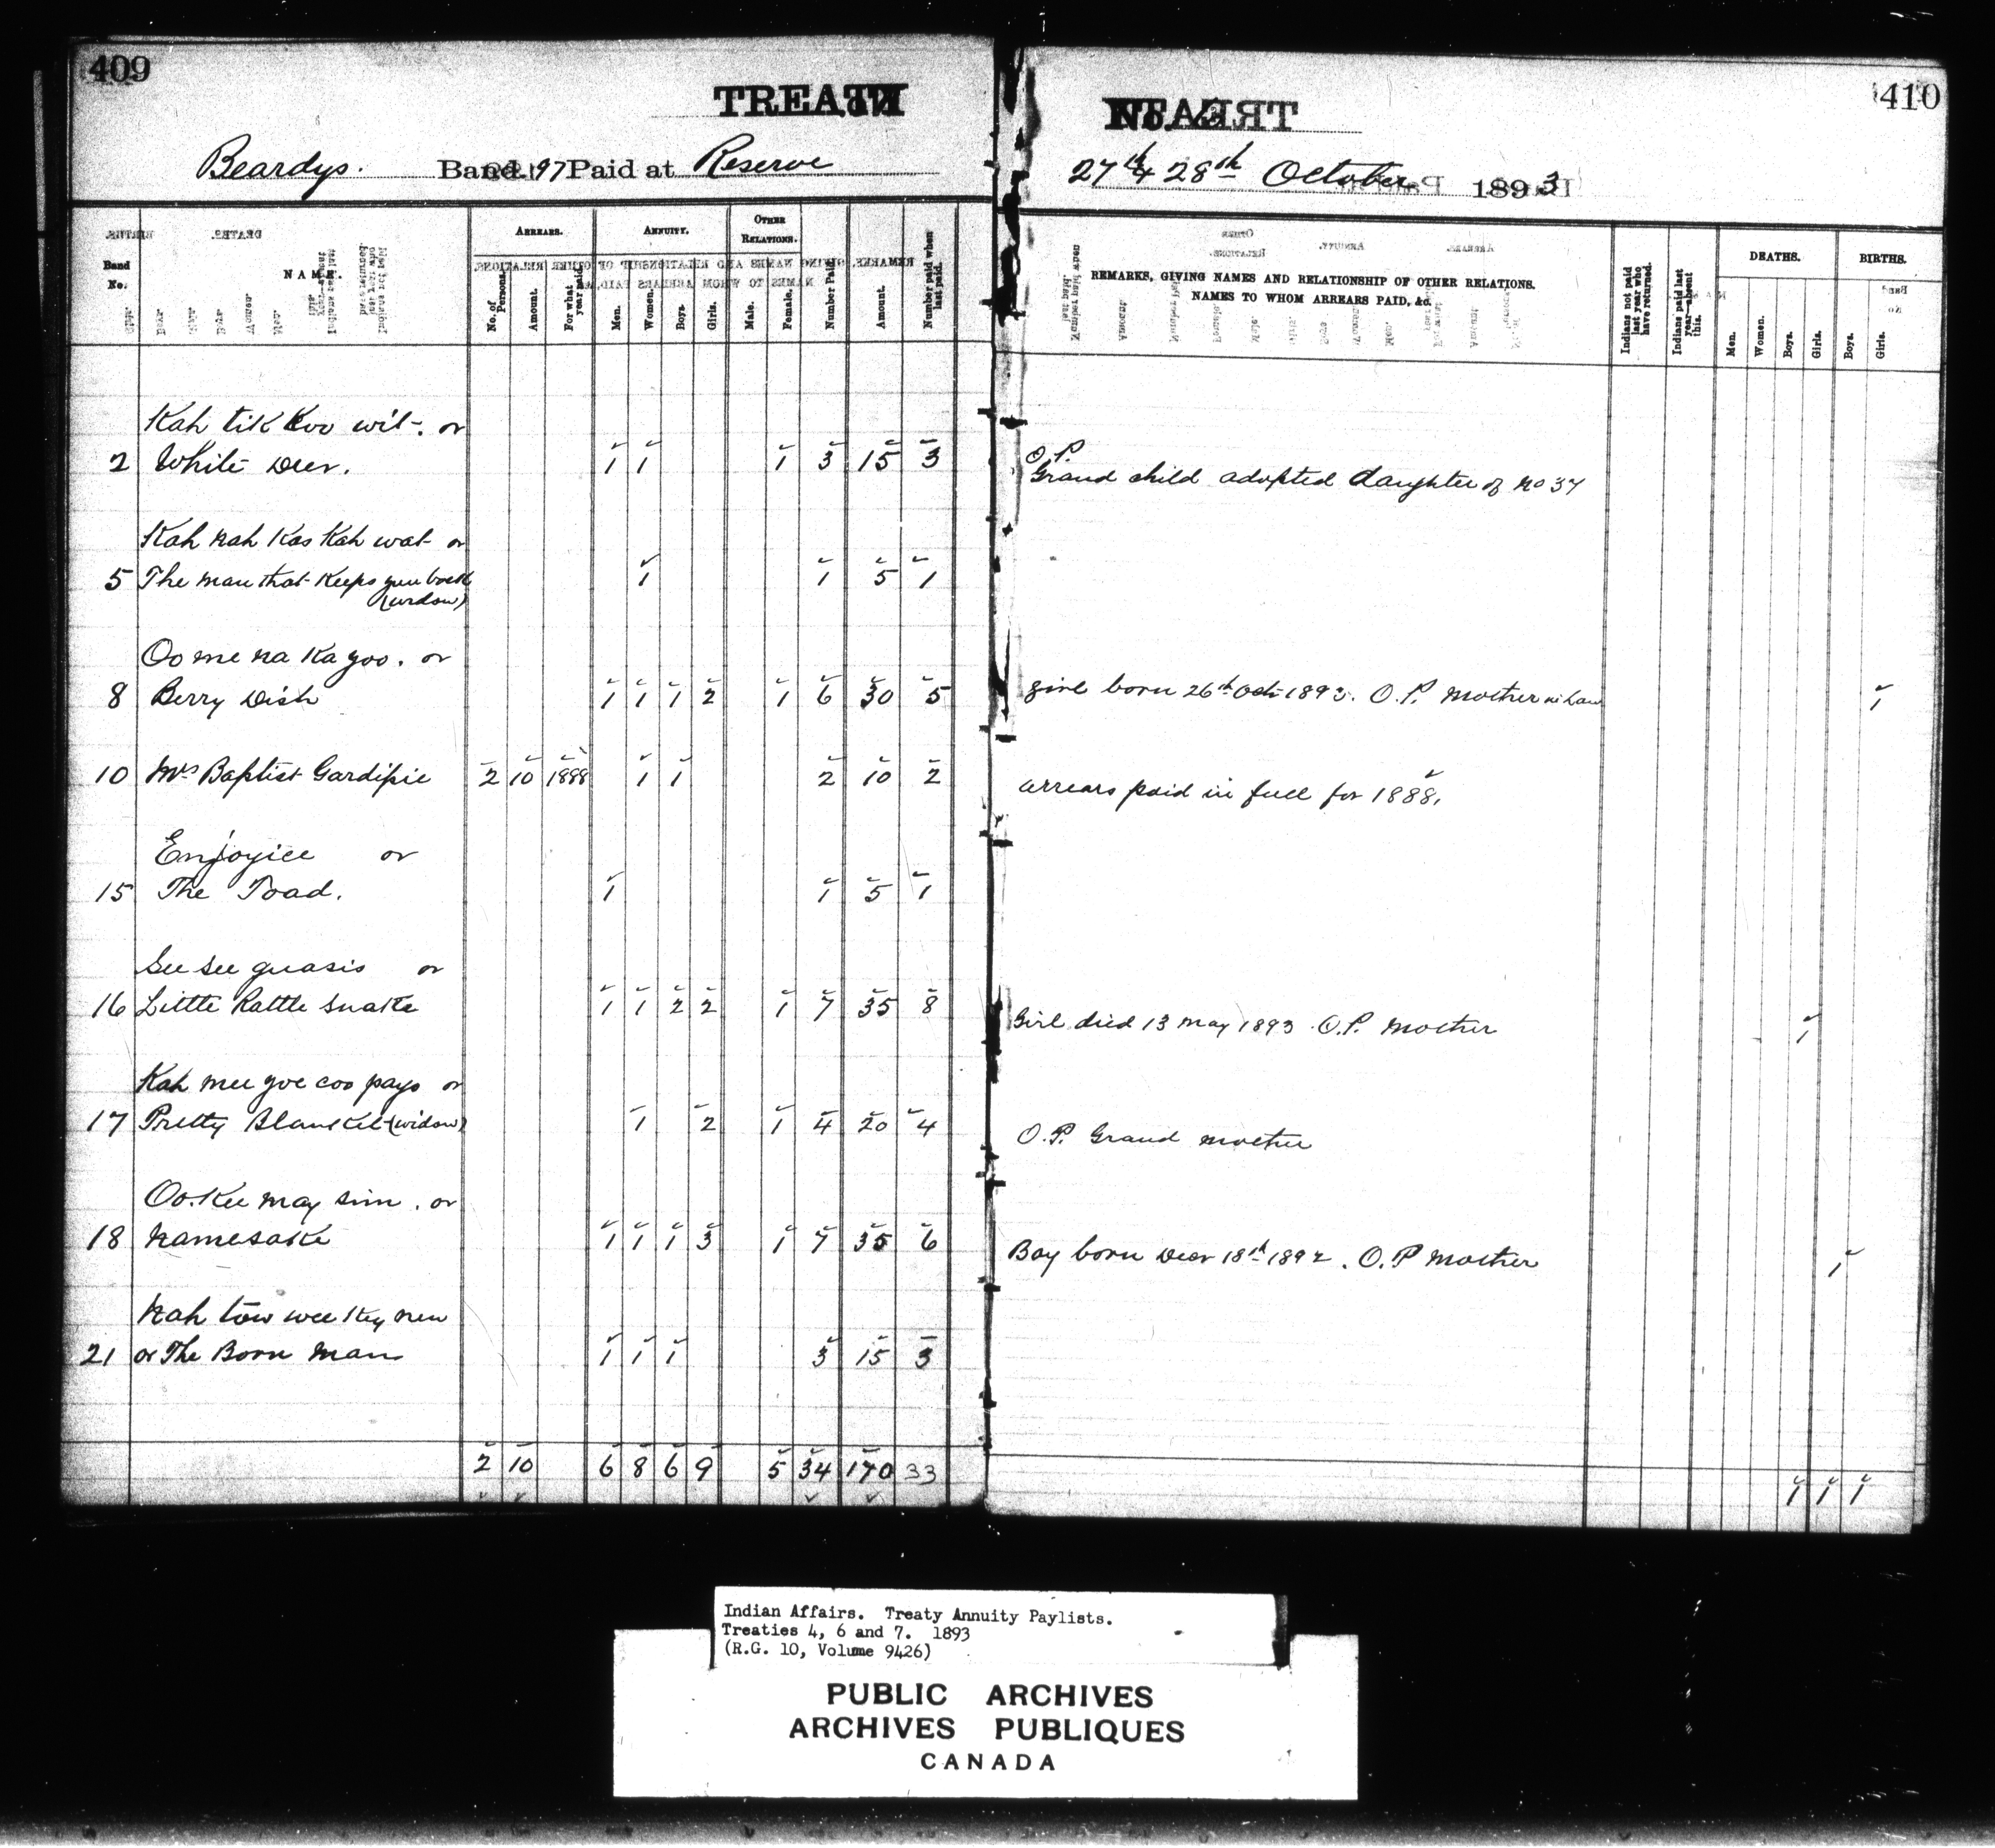 409
TREATY
Beardys. Band. 97 Paid at Reserve
Band No.
NAME.
ARREARS.
No. of Persons.
Amount.
For what year paid.
ANNUITY.
Men.
Women.
Boys.
Girls.
OTHER RELATIONS.
Male.
Female.
Number Paid.
Amount.
Number paid when last paid.
Kah tik koo wit. or
2 White Deer. 1 1 1 3 15 3
Kah nah kas kah wat or
5 The man that keeps gun back 1 1 5 1
(widow)
Oo me na ka yoo. or
8 Berry Dish 1 1 1 2 1 6 30 5
10 Mrs Baptist Gardipie 2 10 1888 1 1 2 10 2
Enjoyice or
15 The Toad. 1 1 5 1
See see quasis or
16 Little Rattle Snake 1 1 2 2 1 7 35 8
Kah mee yoe coo pays or
17 Pretty Blanket (widow) 1 2 1 4 20 4
Oo. kee may sim. or
18 Namesake 1 1 1 3 1 7 35 6
Nah tow wee key new
21 or The Born Man 1 1 1 3 15 3
2 10 6 8 6 9 5 34 170 33
410
No. 6
27th & 28th October 1893
REMARKS, GIVING NAMES AND RELATIONSHIP OF OTHER RELATIONS.
NAMES TO WHOM ARREARS PAID, &c.
Indians not paid last year who have returned.
Indians paid last year—absent this.
DEATHS.
Men.
Women.
Boys.
Girls.
BIRTHS.
Boys.
Girls.
O.P.
Grand child adopted daughter of No 37
girl born 26th Oct 1893. O.P. Mother in Law 1
arrears paid in full for 1888.
Girl died 13 May 1893 O.P. Mother 1
O.P. Grand mother
Boy born Decr 18th 1892. O.P Mother 1
1 1 1
Indian Affairs. Treaty Annuity Paylists.
Treaties 4, 6 and 7. 1893
(R.G. 10, Volume 9426)
PUBLIC ARCHIVES
ARCHIVES PUBLIQUES
CANADA